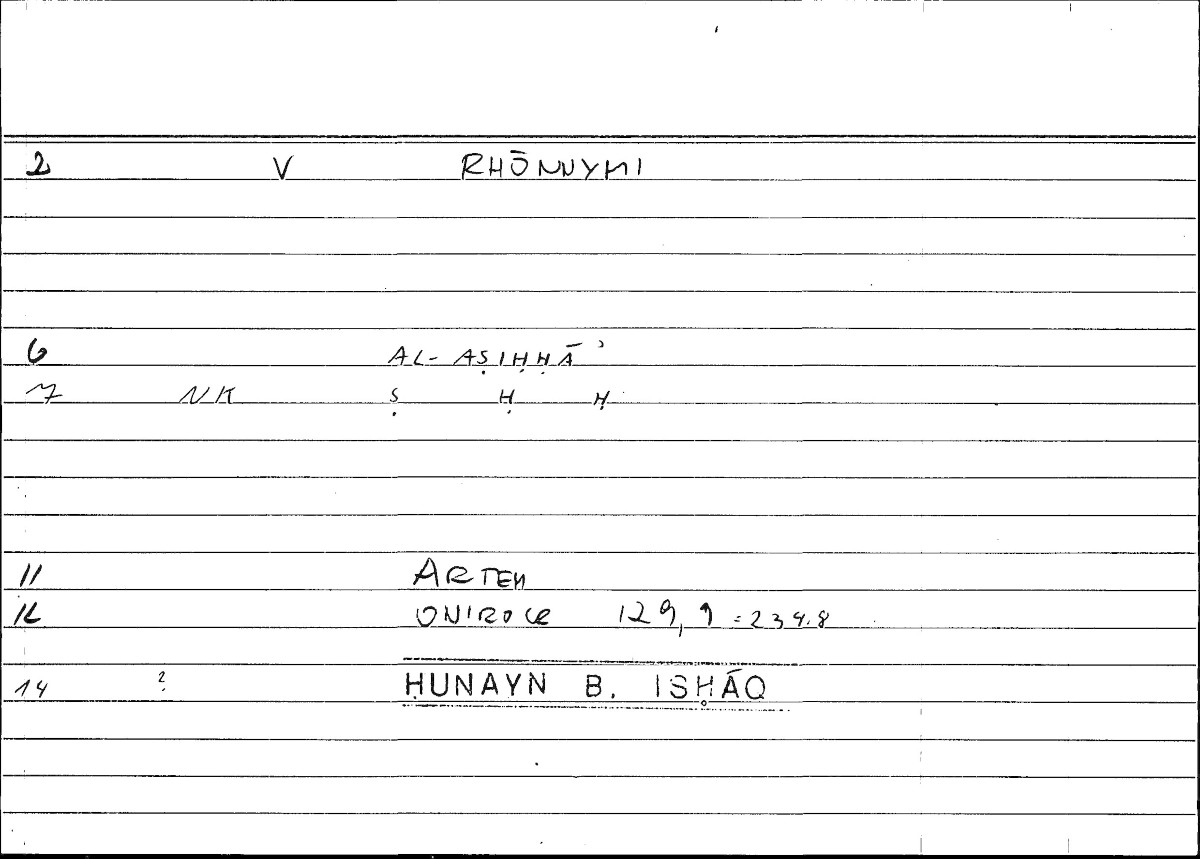 2 V RHŌNNYMI
6 AL-AṢIḤḤĀʾ
7 NK Ṣ Ḥ Ḥ
11 ARTEM
12 ONIROCR 129,9 = 234.8
14 ? ḤUNAYN B. ISḤĀQ